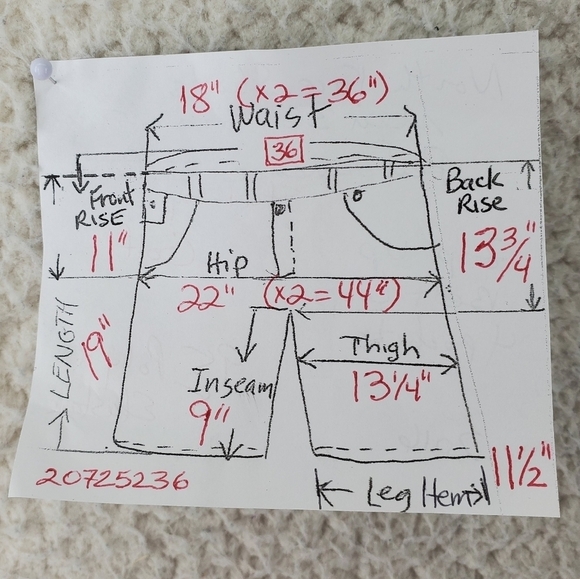 18" (x2=36")
Waist
36
Front
RISE
11"
Back
Rise
13 3/4"
Hip
22" (x2=44")
LENGTH
19"
Thigh
13 1/4"
Inseam
9"
20725236
Leg Hem
11 1/2"